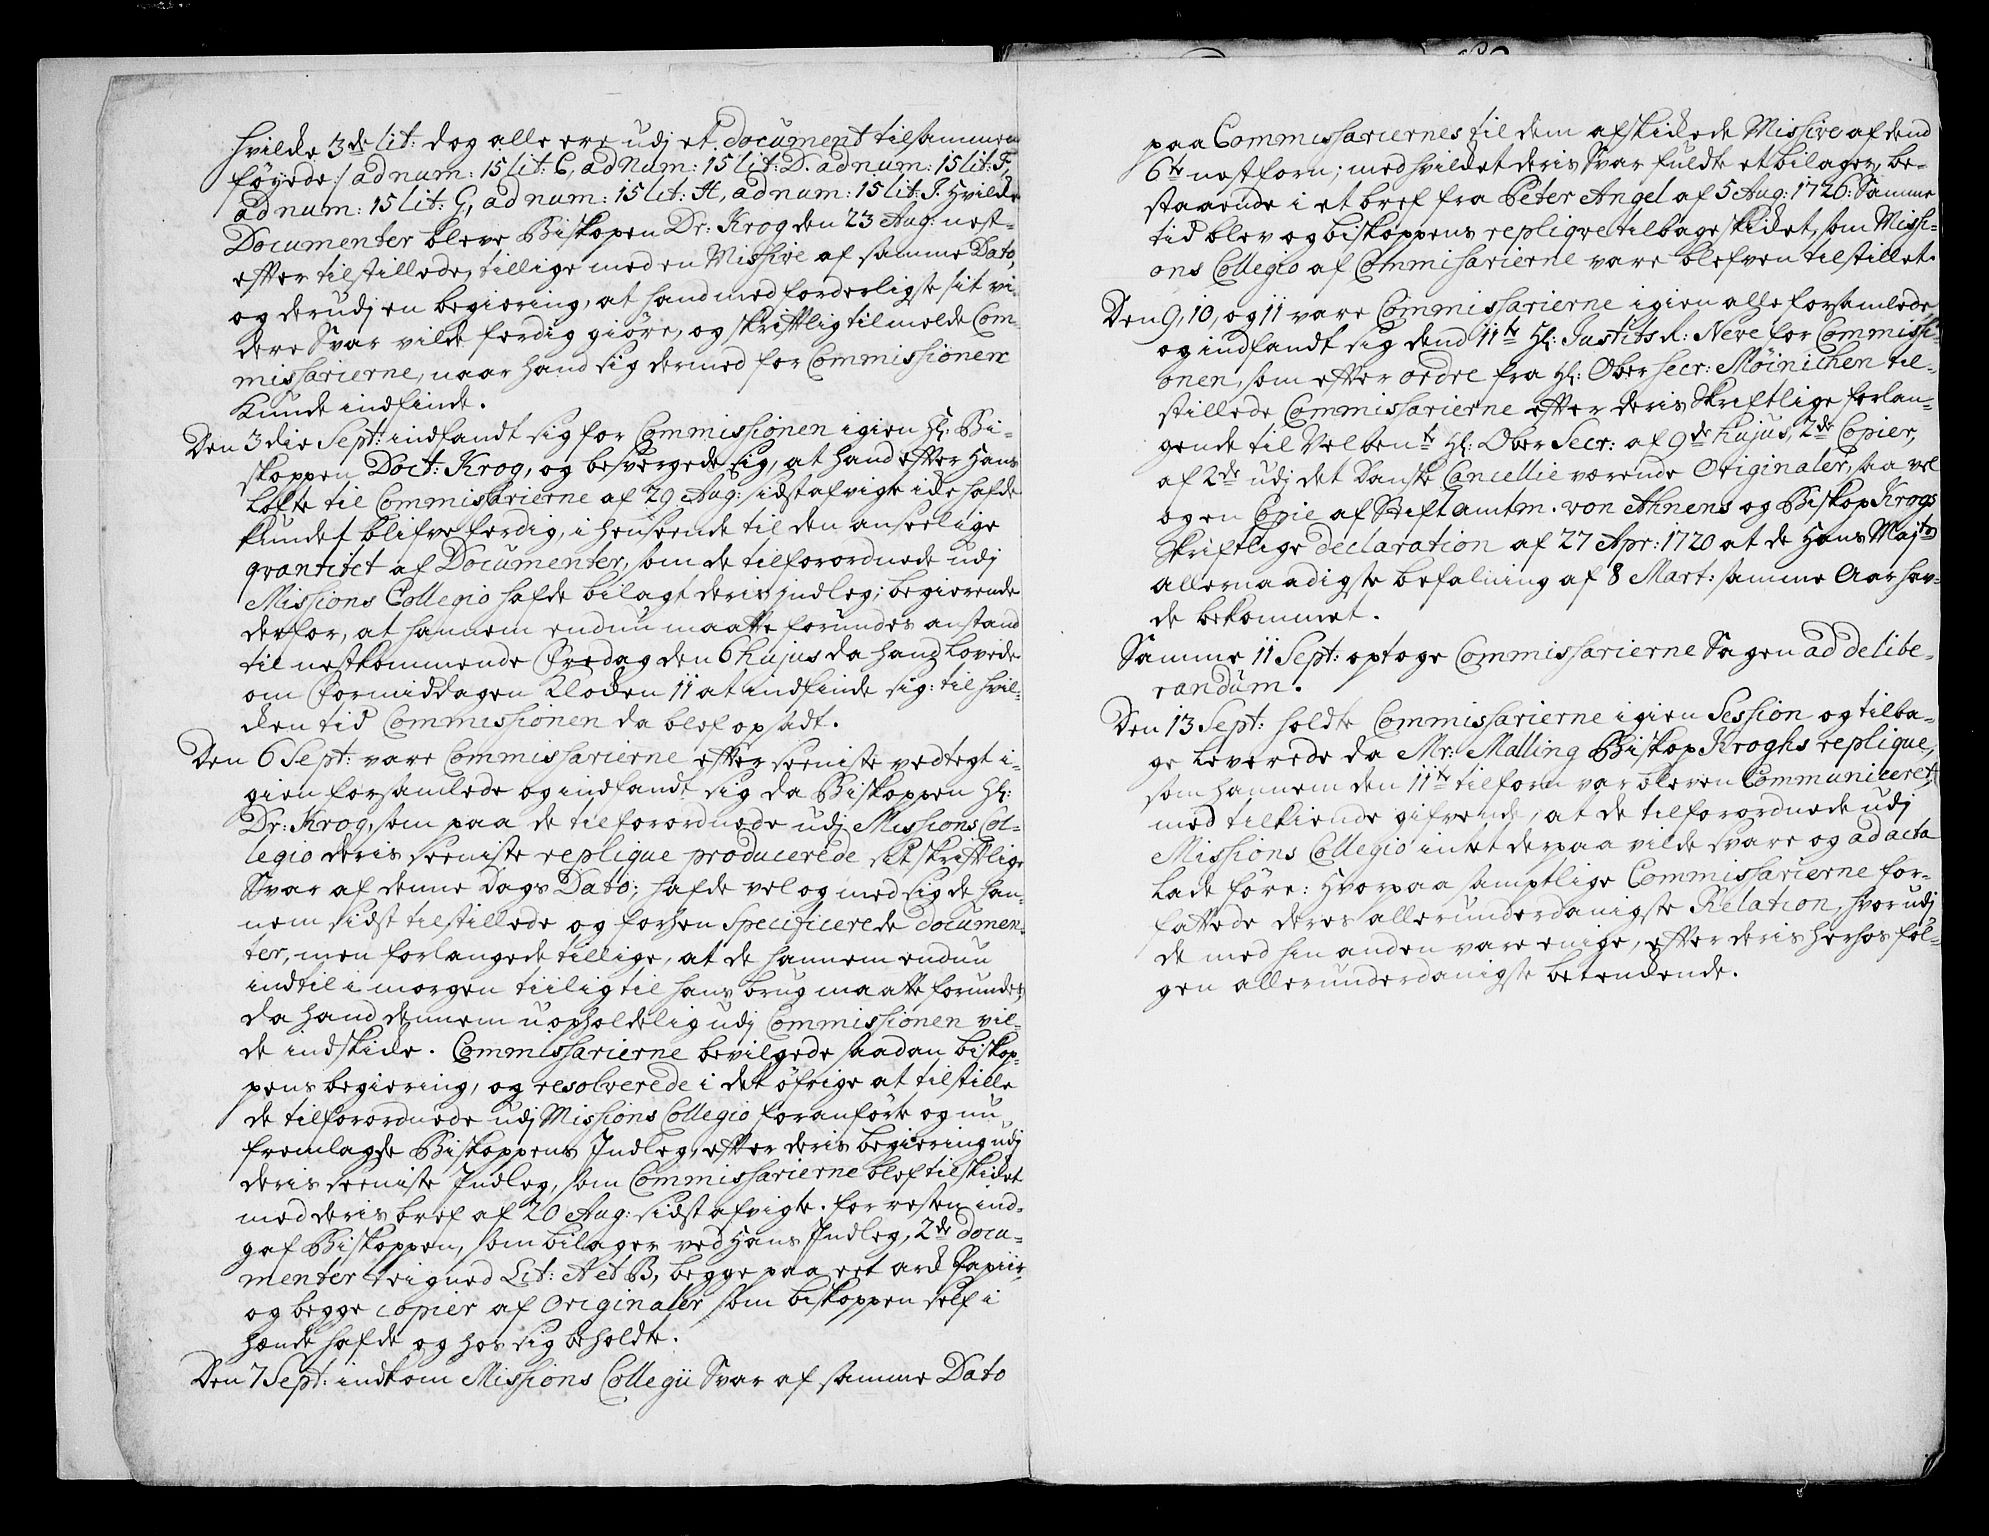 hvilcke 3de lit: dog alle ere udj et document tilsammen
föyede:/ ad num: 15 lit: C, ad Num: 15 lit: D. ad num: 15 lit: F,
ad num: 15 lit: G, ad num: 15 lit: H, ad num: 15 lit: I. Hvilcke
Documenter bleve Biskopen Dr: Krog den 23 Aug: nest-
efter tilstillede, tillige med en Missive af samme Dato,
og derudj en begiering, at hand med forderligste sit vi-
dere Svar vilde ferdig giöre, og skriftlig tilmelde Com-
missarierne, naar hand sig dermed for Commissionen
kunde indfinde.
Den 3die Sept: indfandt sig for Commissionen igien Hr: Bi-
skoppen Doct: Krog, og besvergede sig, at hand efter Hans
Löfte til Commissarierne af 29 Aug: sidstafvigte icke hafde
kundet blifve ferdig, i henseende til den anseelige
qvantitet af Documenter, som de tilforordnede udj
Missions Collegio hafde bilagt deris indleg; begierende
derfor, at hannem endnu maatte forundes anstand
til nestkommende Fredag den 6 hujus da hand lovede
om Formiddagen Klocken 11 at indfinde sig: til hvil-
cken tid Commissionen da blef opsadt.
Den 6 Sept: vare Commissarierne efter seeniste vedtegt i-
gien forsamlede og indfandt sig da Biskoppen Hr:
Dr: Krog, som paa de tilforordnede udj Missions Col-
legio deris seeniste replique producerede sit skriftlige
Svar af denne dags Dato; hafde vel og med sig de han-
nem sidst tilstillede og forhen Specificerede documen-
ter, men forlangede tillige, at de hannem endnu
indtil i morgen tiilig til hans brug maatte forundes,
da hand dennem uopholdelig udj Commissionen vil-
de indskicke. Commissarierne bevilgede saadan biskop-
pens begiering, og resolverede i det öfrige at tilstille
de tilforordnede udj Missions Collegio foranförte og nu
fremlagde Biskoppens Indleg, efter deris begiering udj
deris seeniste Indleg, som Commissarierne blef tilskicket
med deris bref af 20 Aug: sidst afvigte. for resten ind-
gaf Biskoppen, som bilager ved Hans Indleg, 2de docu-
menter teigned Lit: A et B, begge paa eet arck Papiir,
og begge copier af Originaler som biskoppen self i
hænde hafde og hos sig beholdte.
Den 7 Sept: indkom Missions Collegii Svar af samme Dato
paa Commissariernes til dem afskickede Missive af dend
6te nestforn; med hvilcket deris Svar fuldte et bilager, be-
staaende i et bref fra Peter Angel af 5 Aug: 1726: Samme
tid blev og biskoppens replique tilbageskicket, som Missi-
ons Collegio af Commissarierne vare blefven tilstillet.
Den 9, 10, og 11 vare Commissarierne igien alle forsamlede,
og indfandt sig dend 11te Hr: Justits R: Neve for Commissi-
onen, som efter ordre fra Hr: Ober Secr: Möinichen til-
stillede Commissarierne efter deris Skriftlige forlan-
gende til Velbente Hr: Ober Secr: af 9de hujus, 2de Copier,
af 2de udj det Danske Cancellie værende Originaler, saa vel
og en Copie af Stiftamtm. von Ahnens og Biskop Krogs
Skriftlige declaration af 27 Apr: 1720 at de Hans Majts
allernaadigste befalning af 8 Mart: samme Aar hav-
de bekommet.
Samme 11 Sept: optoge Commissarierne Sagen ad delibe-
randum.
Den 13 Sept: holdte Commissarierne igien Session og tilba-
ge leverede da Mr: Malling Biskop Kroghs replique,
som hannem den 11te tilforn var bleven Communiceret,
med tilkiende gifvende, at de tilforordnede udj
Missions Collegio intet derpaa vilde svare og ad acta
lade före: Hvorpaa samptlige Commissarierne for-
fattede deres allerunderdanigste Relation, hvorudj
de med hin anden vare enige, efter deris herhos föl-
gen allerunderdanigste betenckende.